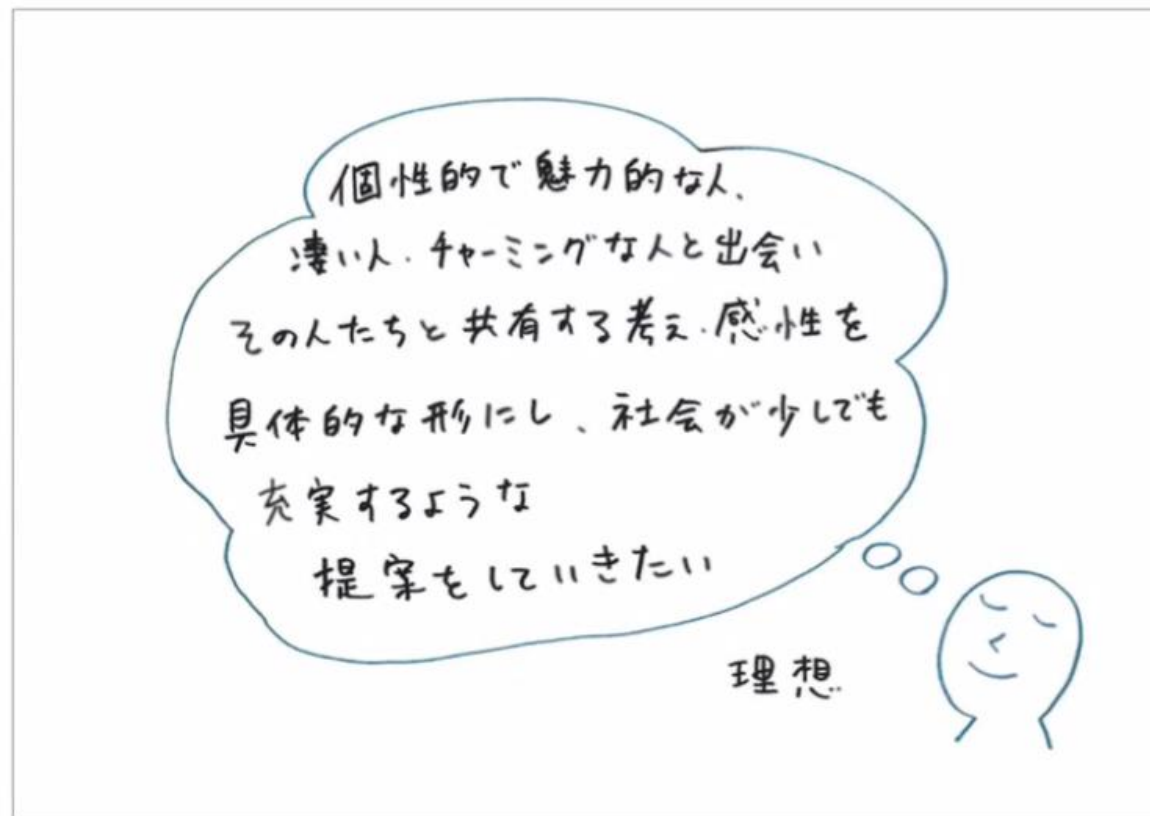 個性的で魅力的な人、
凄い人、チャーミングな人と出会い
その人たちと共有する考え、感性を
具体的な形にし、社会が少しでも
充実するような
提案をしていきたい
理想